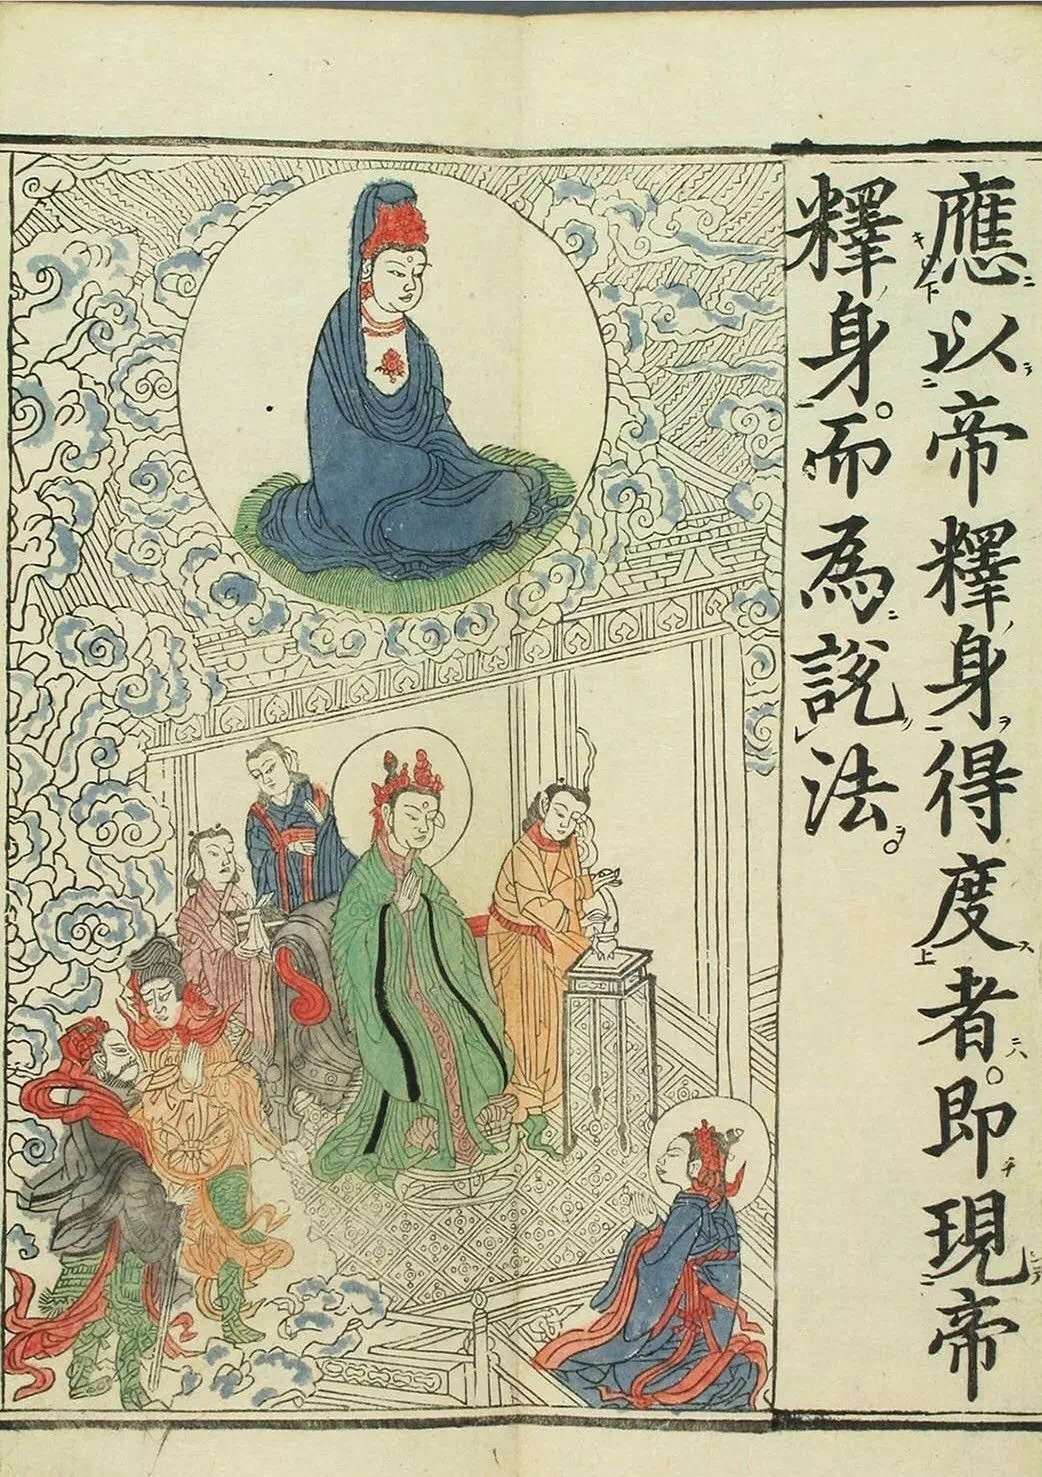 應以帝釋身得度者。即現帝
釋身。而為說法。